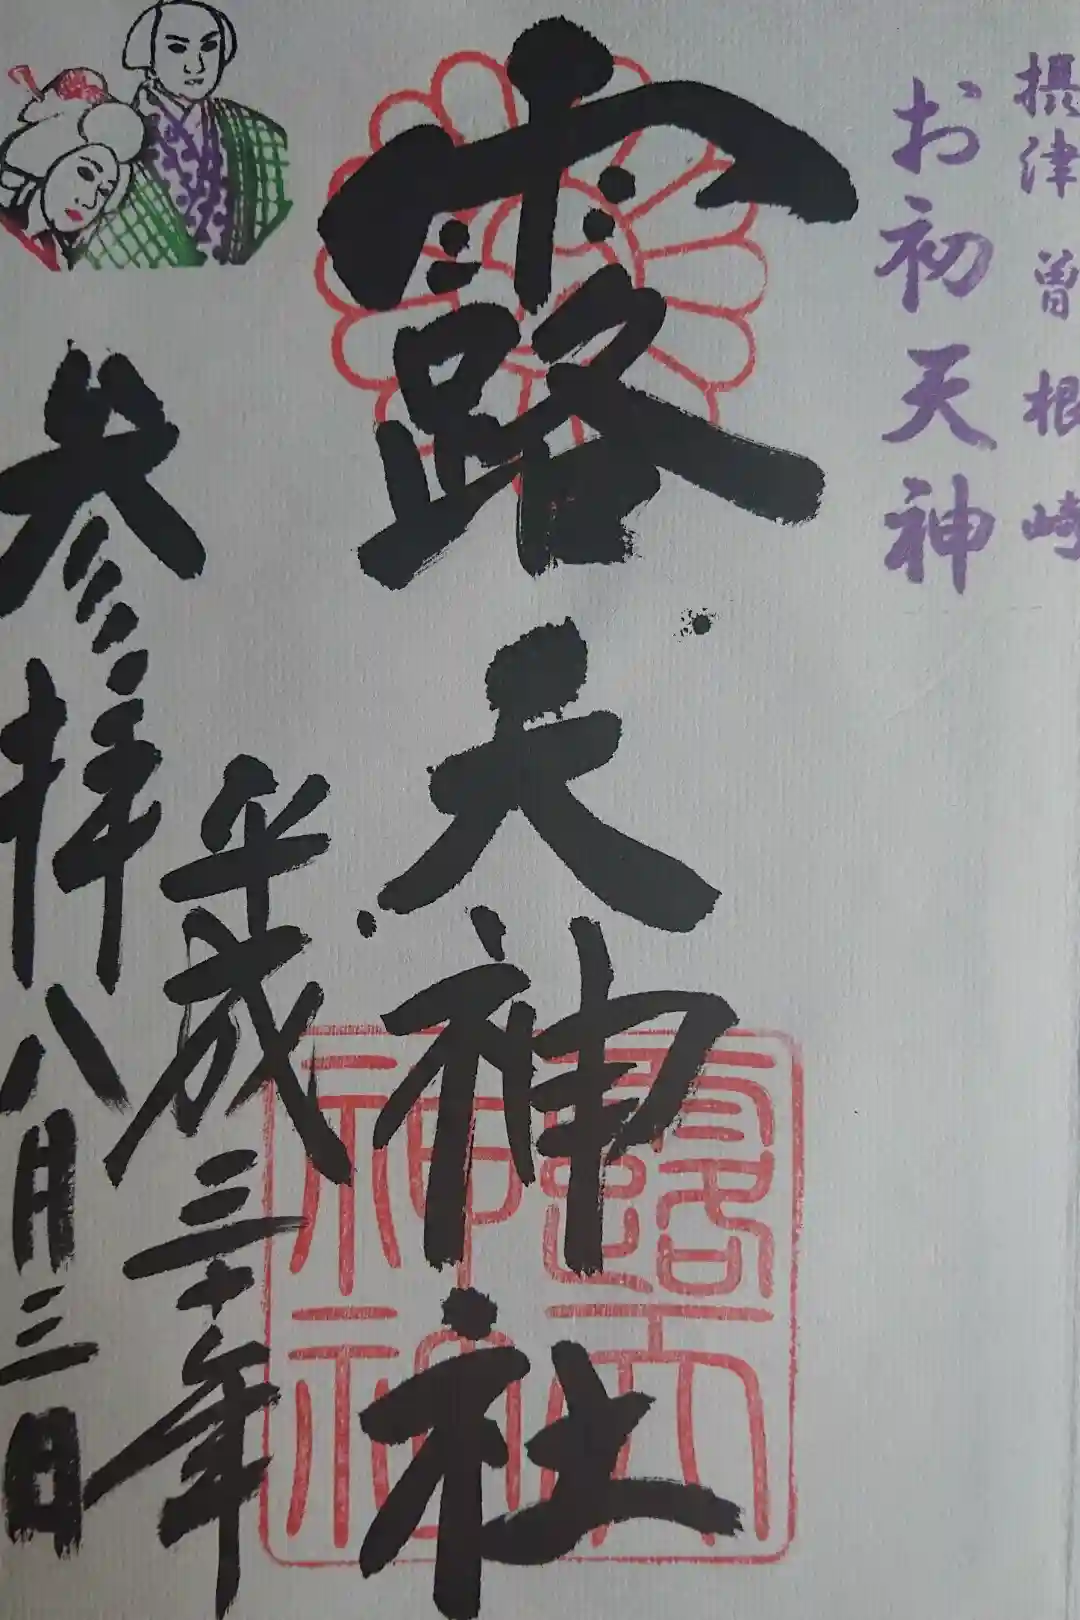 摂津曽根崎
お初天神
露天神社
露天
神社
平成三十年
参拝八月三日